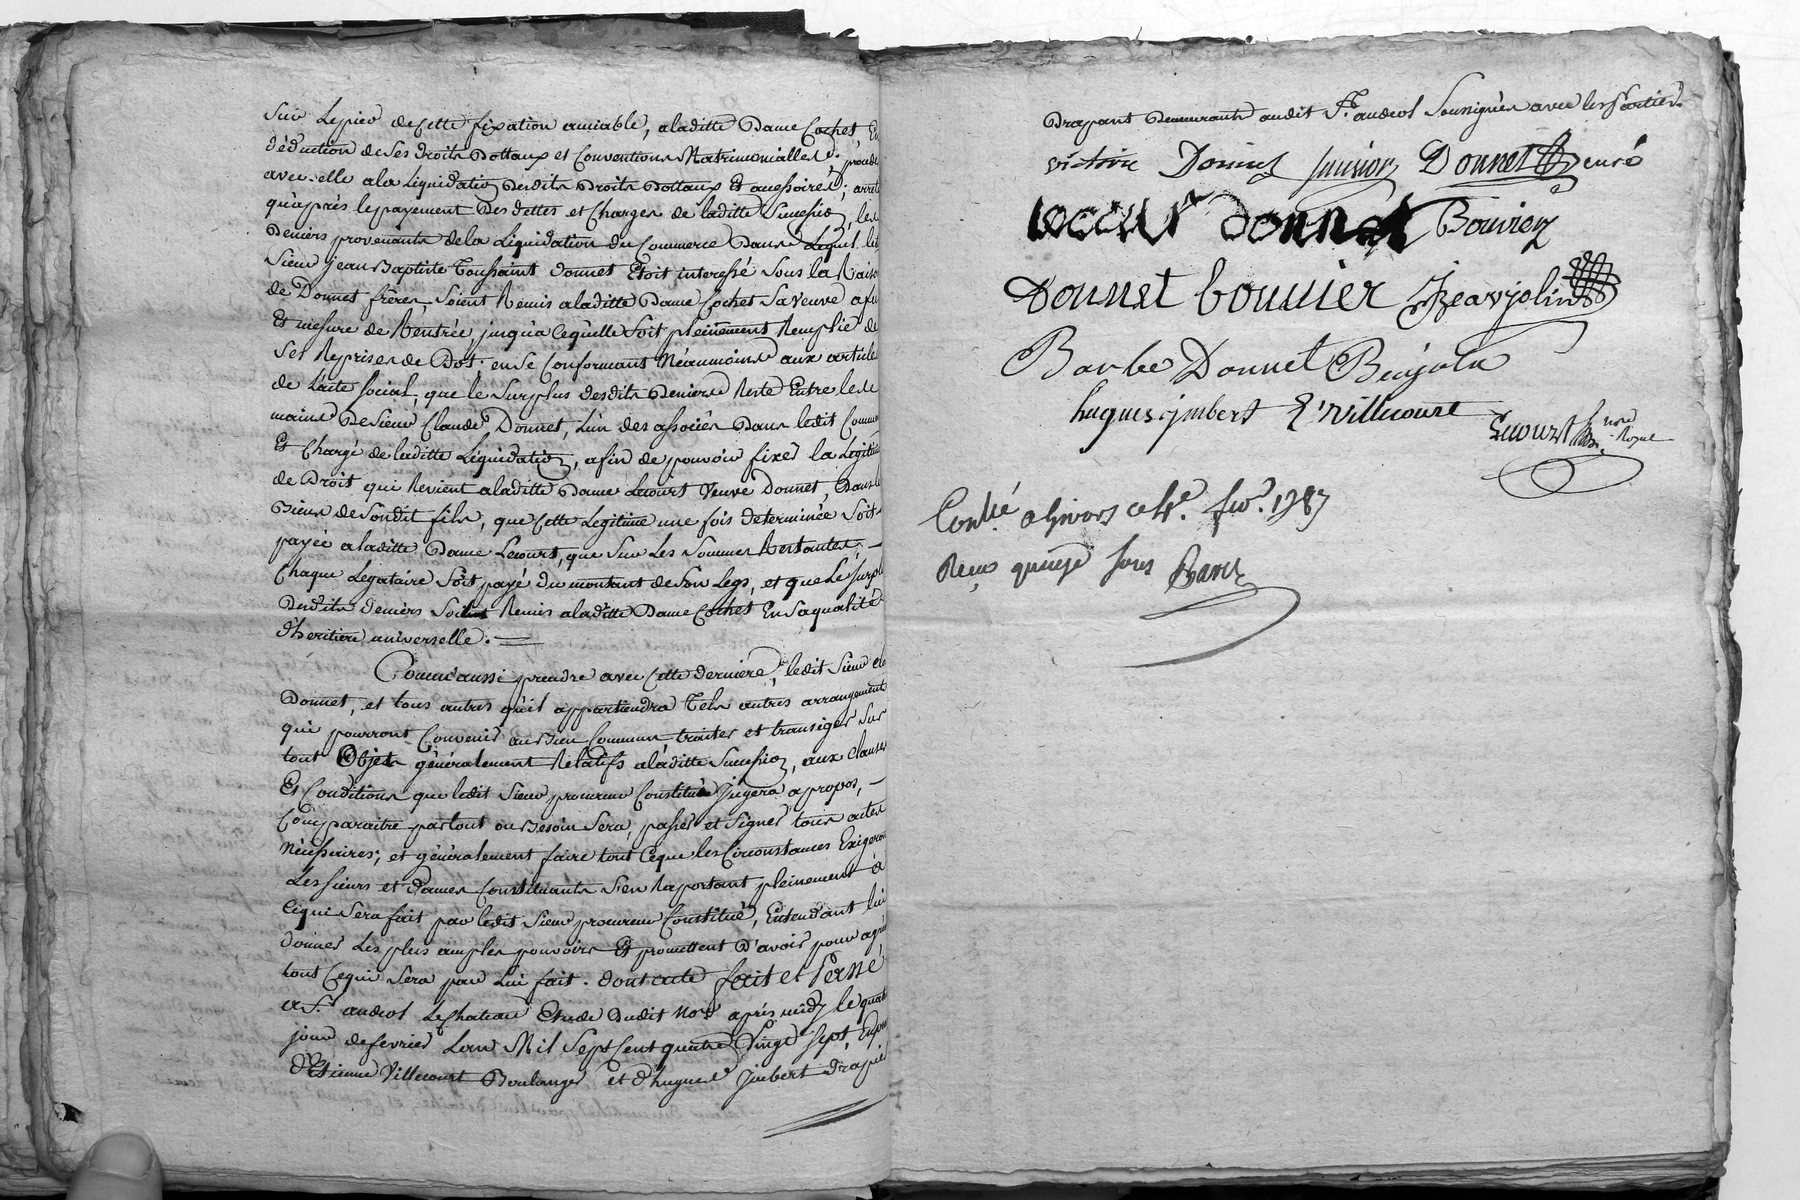 Sur le pied de cette fixation amiable, a laditte Dame Cochet, En
déduction de ses droits Dottaux et Conventions Matrimonialles; procéder
avec elle a la Liquidation desdits Droits Dottaux Et accessoires; arreter
qu'après le payement des dettes et Charges de laditte Succession, les
Deniers provenants de la Liquidation du Commerce Dans Lequel, led.
Sieur jean Baptiste Toussaint Donnet Etoit interessé Sous la Raison
de Donnet frères, Soient Remis a laditte Dame Cochet Sa Veuve a fur
Et mesure de Rentrée, jusqu'a ce qu'elle soit pleinement Remplie de
Ses Reprises de Dot; en se Conformant Néanmoins aux articles
de l'acte social, que le Surplus desdits Deniers Reste Entre les
mains De Sieur Claude Donnet, L'un des associés Dans ledit Commerce
Et Chargé de laditte Liquidation, afin de pouvoir fixer la Légitime
de Droit qui Revient a laditte Dame Lecourt Veuve Donnet, Dans les
Biens de Sondit fils, que Cette Legitime une fois determinée Soit
payée a laditte Dame Lecourt, que Sur Les Sommes Restantes,
Chaque Legataire Soit payé du montant de Son Legs, et que Le Surplus
Desdits deniers Soient Remis a laditte Dame Cochet En Sa qualité
d'heritiere universelle.
Pourra aussi prendre avec Cette derniere, ledit Sieur
Donnet, et tous autres qu'il appartiendra Tels autres arrangements
qui pourront Convenir au Bien Commun traiter et transiger Sur
tout Objets généralement Relatifs a laditte Succession, aux Clauses
Et Conditions que ledit Sieur procureur Constitué Jugera apropos,
Comparaitre partout ou Besoin Sera, passer et Signer tous actes
Nécessaires; et généralement faire tout Ceque les Circonstances Exigeront
Les Sieurs et Dames Constituants S'en Raportant pleinement à
Cequi Sera fait par ledit Sieur procureur Constitué, Entendant lui
donner Les plus amples pouvoirs Et promettent D'avoir pour agréé
tout Cequi Sera par Lui fait. Dont acte fait et Passé
a St. andeol Le Chateau Etude Dudit Nore. après midy le quatre
jour de fevrier L'an Mil Sept Cent quatre Vingt Sept, En presence
d'Etienne Villecourt Boulanger et d'hugues Imbert Drapier
Drapant Demeurants audit St. andeol Soussignés avec les Parties
victoire Donnet Donnet curé
lecour donnet Bouvier
Donnet bouvier Beavjolin
Barbe Donnet Bejolin
hugues imbert E Villecourt
Lecourt nore Royal
Conlé a Givors ce 4e. fer. 1787
Recu quinze Sous